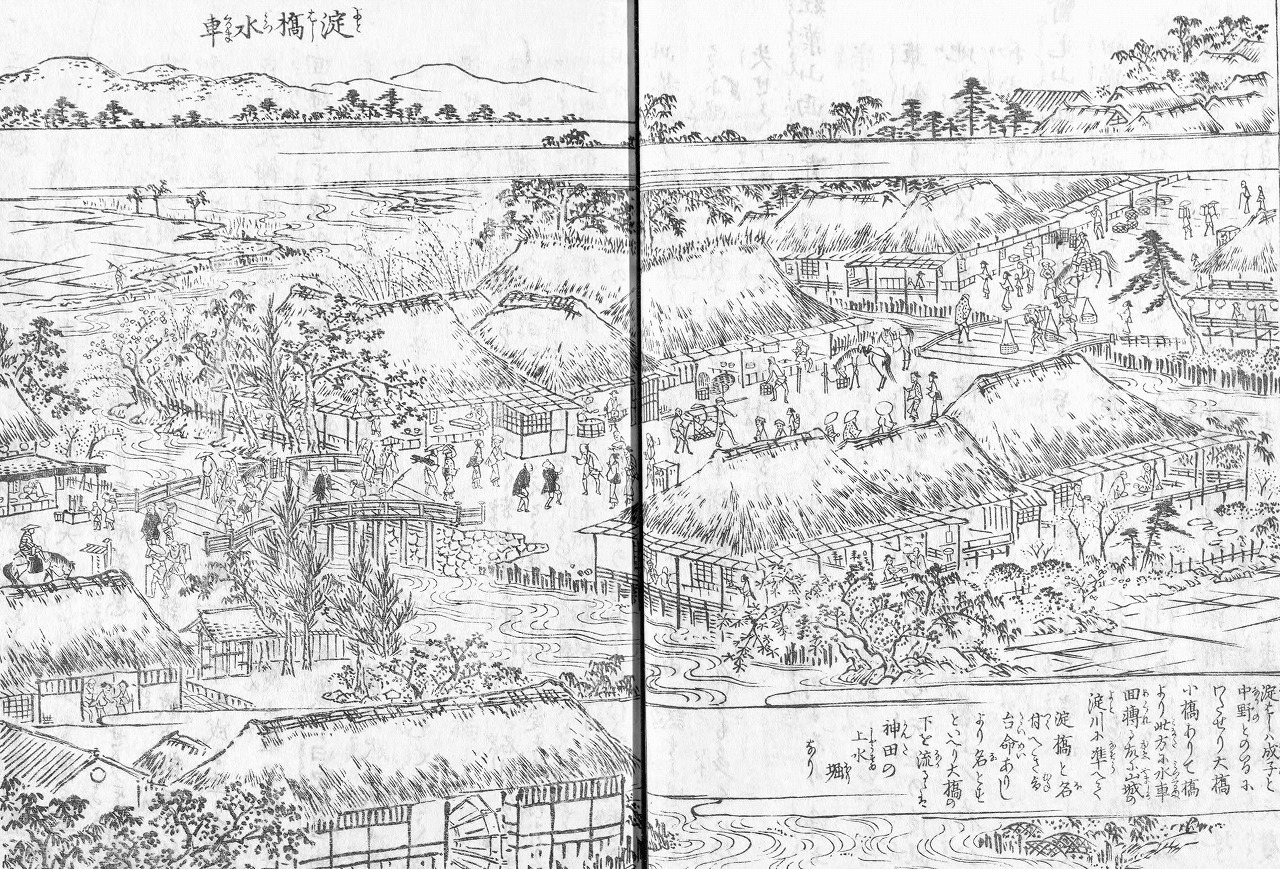 淀橋水車
淀はしハ成子と
中野との間に
わたせり大橋
小橋ありて橋
より此方に水車
回轉る故に山城の
淀川に準へて
淀橋と名
付へき旨
台命ありし
より名とす
といへり大橋の
下を流るゝは
神田の
上水堀
なり